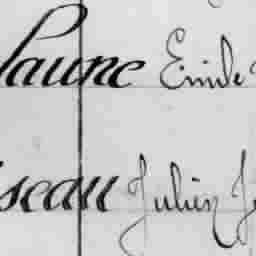 laune Emile
seau Julien